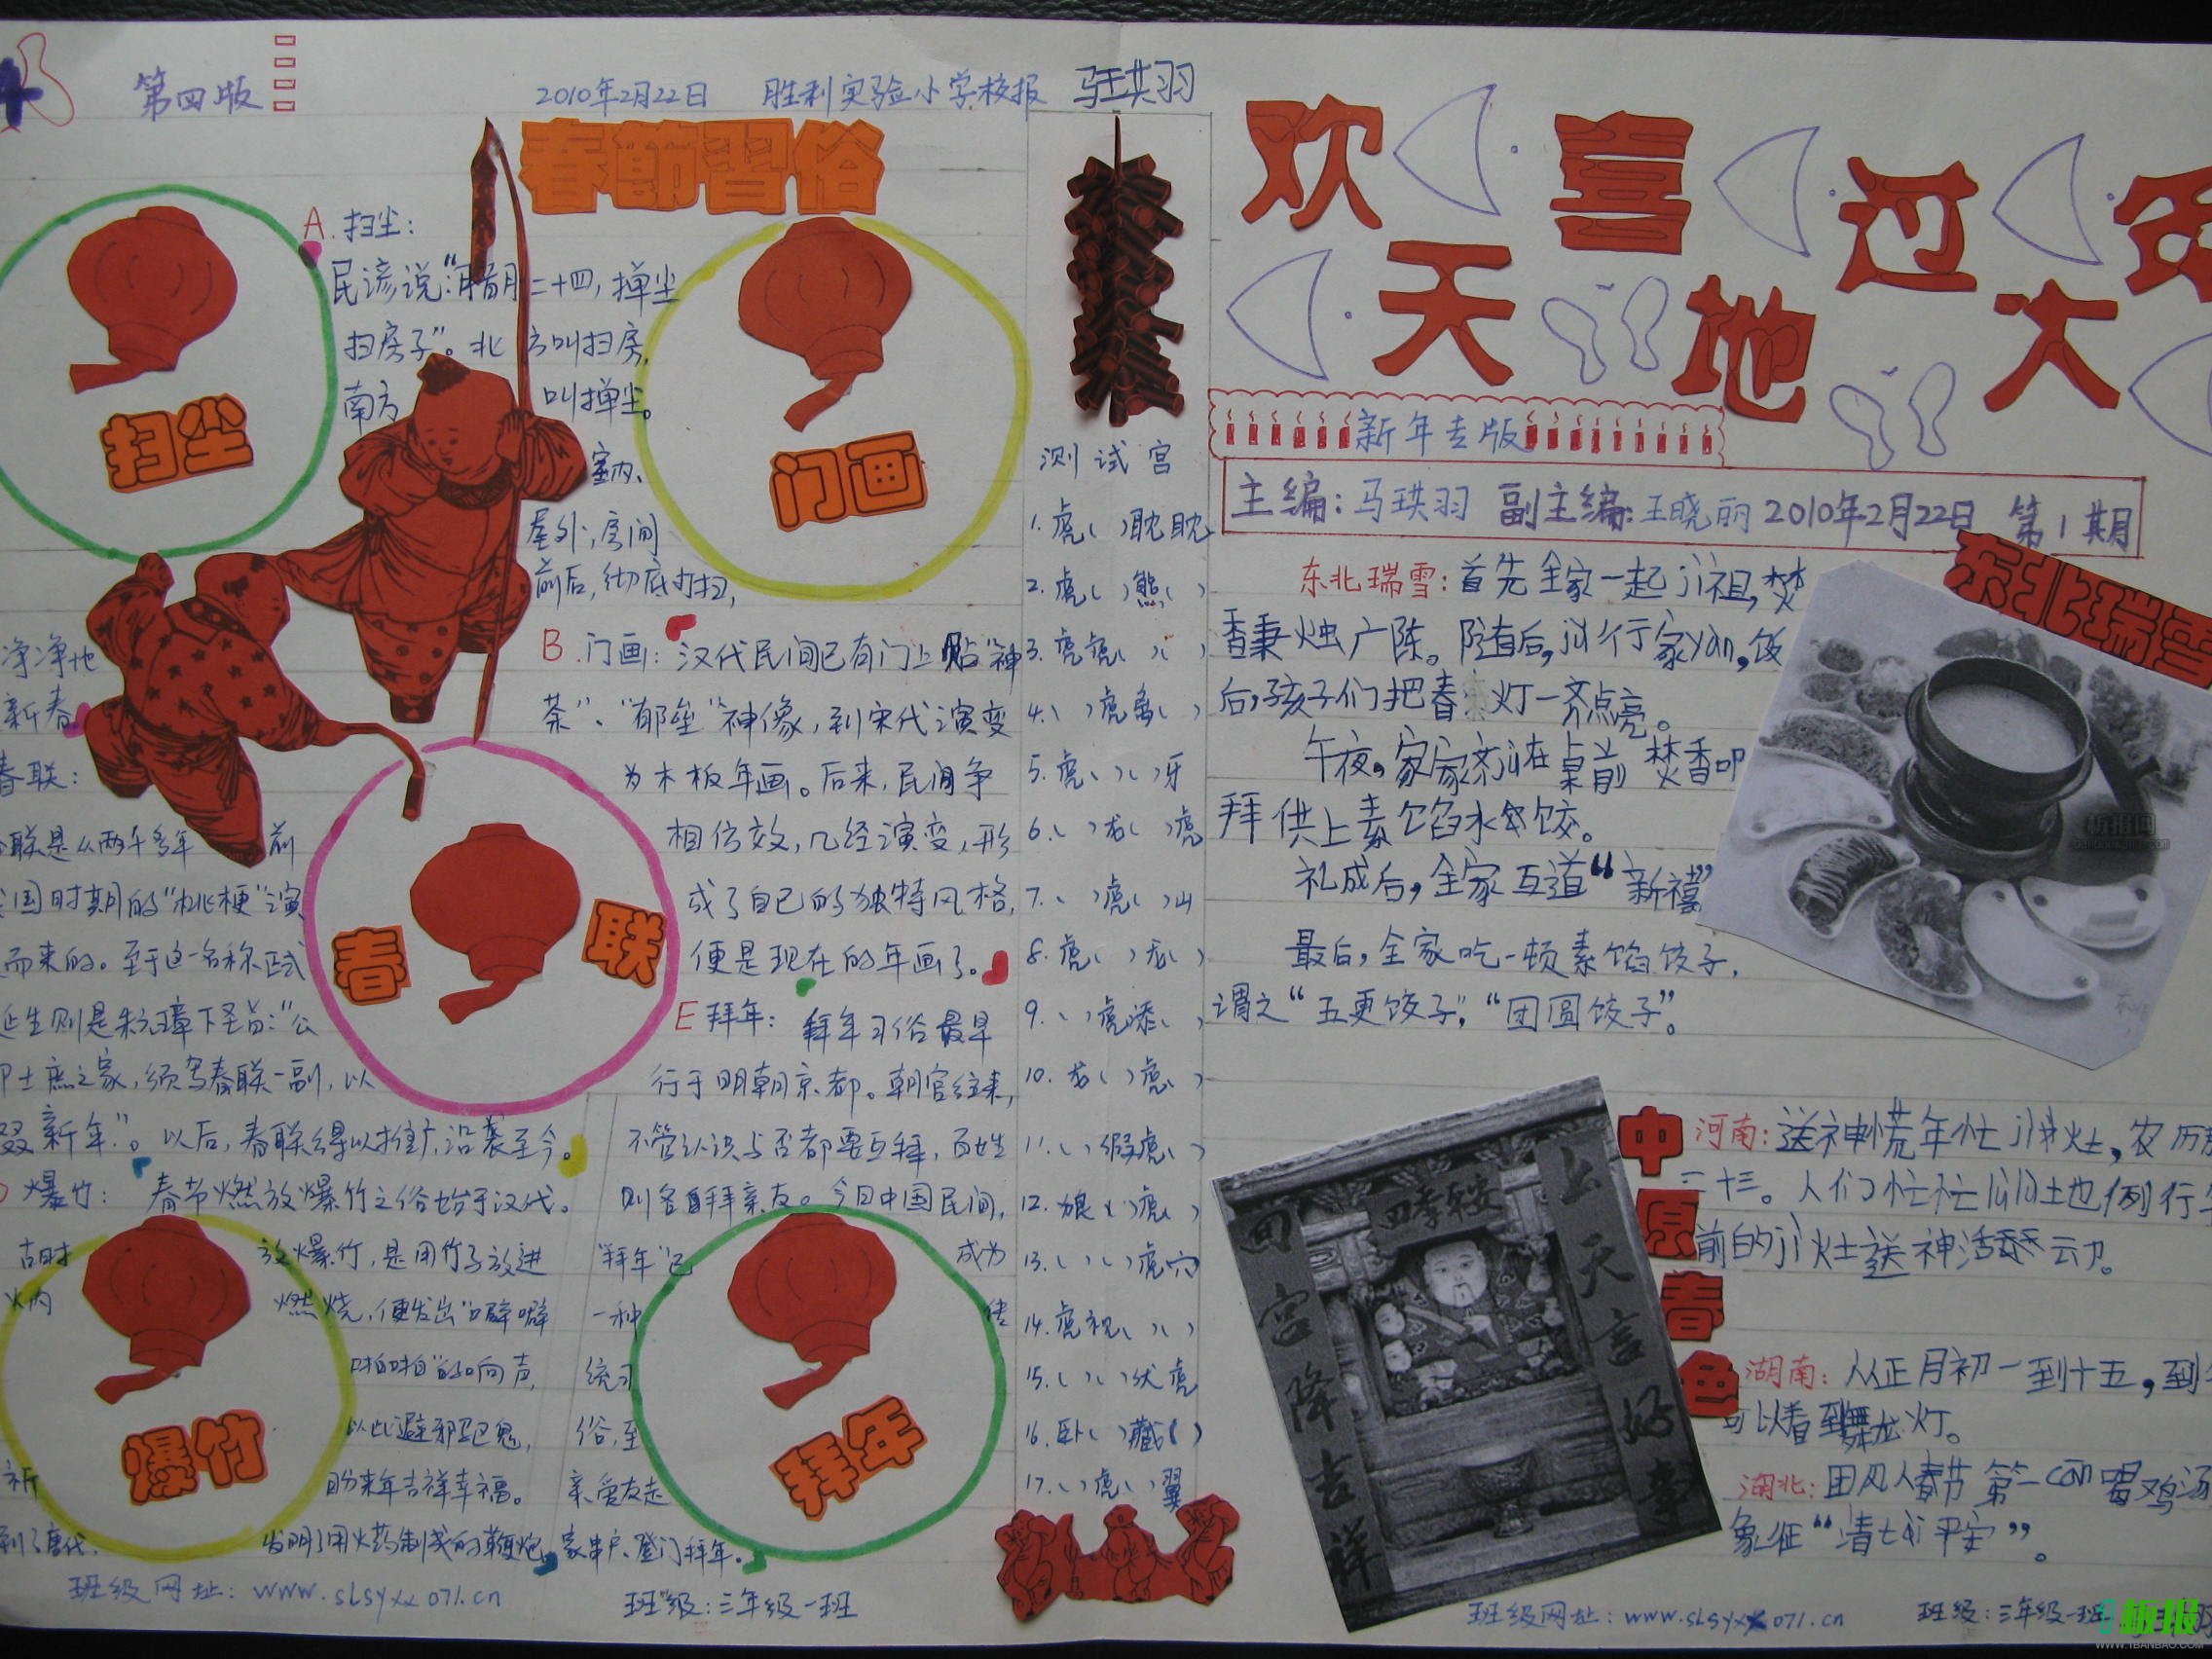 第四版
2010年2月22日 胜利实验小学校报 马珙羽
春節習俗
扫尘
A.扫尘:
民谚说:"腊月二十四,掸尘
扫房子"。北方叫扫房,
南方叫掸尘。
室内、
屋外,房间
前后,彻底打扫,
净净地
新春
门画
B.门画:汉代民间已有门上贴"神
荼"、"郁垒"神像,到宋代演变
为木板年画。后来,民间争
相仿效,几经演变,形
成了自己的独特风格,
便是现在的年画了。
春联:
联是从两千多年前
国时期的"桃梗"演
而来的。至于这一名称正式
诞生则是朱元璋下圣旨:"公
卿士庶之家,须写春联一副,以
缀新年"。以后,春联得以推广,沿袭至今。
春联
D爆竹:春节燃放爆竹之俗始于汉代。
古时放爆竹,是用竹子放进
火内燃烧,便发出"噼噼
啪啪"的响声,
以此避邪驱鬼,
祈盼来年吉祥幸福。
到了唐代,发明了用火药制成的鞭炮。
爆竹
E拜年:拜年习俗最早
行于明朝京都。朝官往来,
不管认识与否都要互拜,百姓
则各自拜亲友。今日中国民间,
"拜年"已成为
一种传
统习
俗,至
亲爱友走
家串户、登门拜年。
拜年
班级网址:www.slsyxx071.cn
班级:三年级一班
测试宫
1.虎( )眈眈
2.虎( )熊( )
3.虎虎( )( )
4.( )虎离( )
5.虎( )( )牙
6.( )龙( )虎
7.( )虎( )山
8.虎( )龙( )
9.( )虎添( )
10.龙( )虎( )
11.( )假虎( )
12.狼( )虎( )
13.( )( )虎穴
14.虎视( )( )
15.( )( )伏虎
16.卧( )藏( )
17.( )虎( )翼
欢天喜地过大
新年专版
主编:马珙羽 副主编:王晓丽 2010年2月22日 第1期
东北瑞雪
东北瑞雪:首先全家一起jì祖,焚
香秉烛广陈。随后,jǔ行家yàn,饭
后,孩子们把春灯一齐点亮。
午夜,家家齐jù在桌前焚香叩
拜供上素馅水饺。
礼成后,全家互道"新禧"
最后,全家吃一顿素馅饺子,
谓之"五更饺子","团圆饺子"。
中原春色
河南:送神慌年忙jì灶,农历
二十三。人们忙忙lùlù地例行年
前的jì灶送神活动。
湖南:从正月初一到十五,到
可以看到舞龙灯。
湖北:团风人春节第一cān喝鸡汤
象征"清tài平安"。
四季平安
上天言好事
回宫降吉祥
班级网址:www.slsyxx071.cn
班级:三年级一班
板报网
banbaowang.com
1板报
WWW.1BANBAO.COM